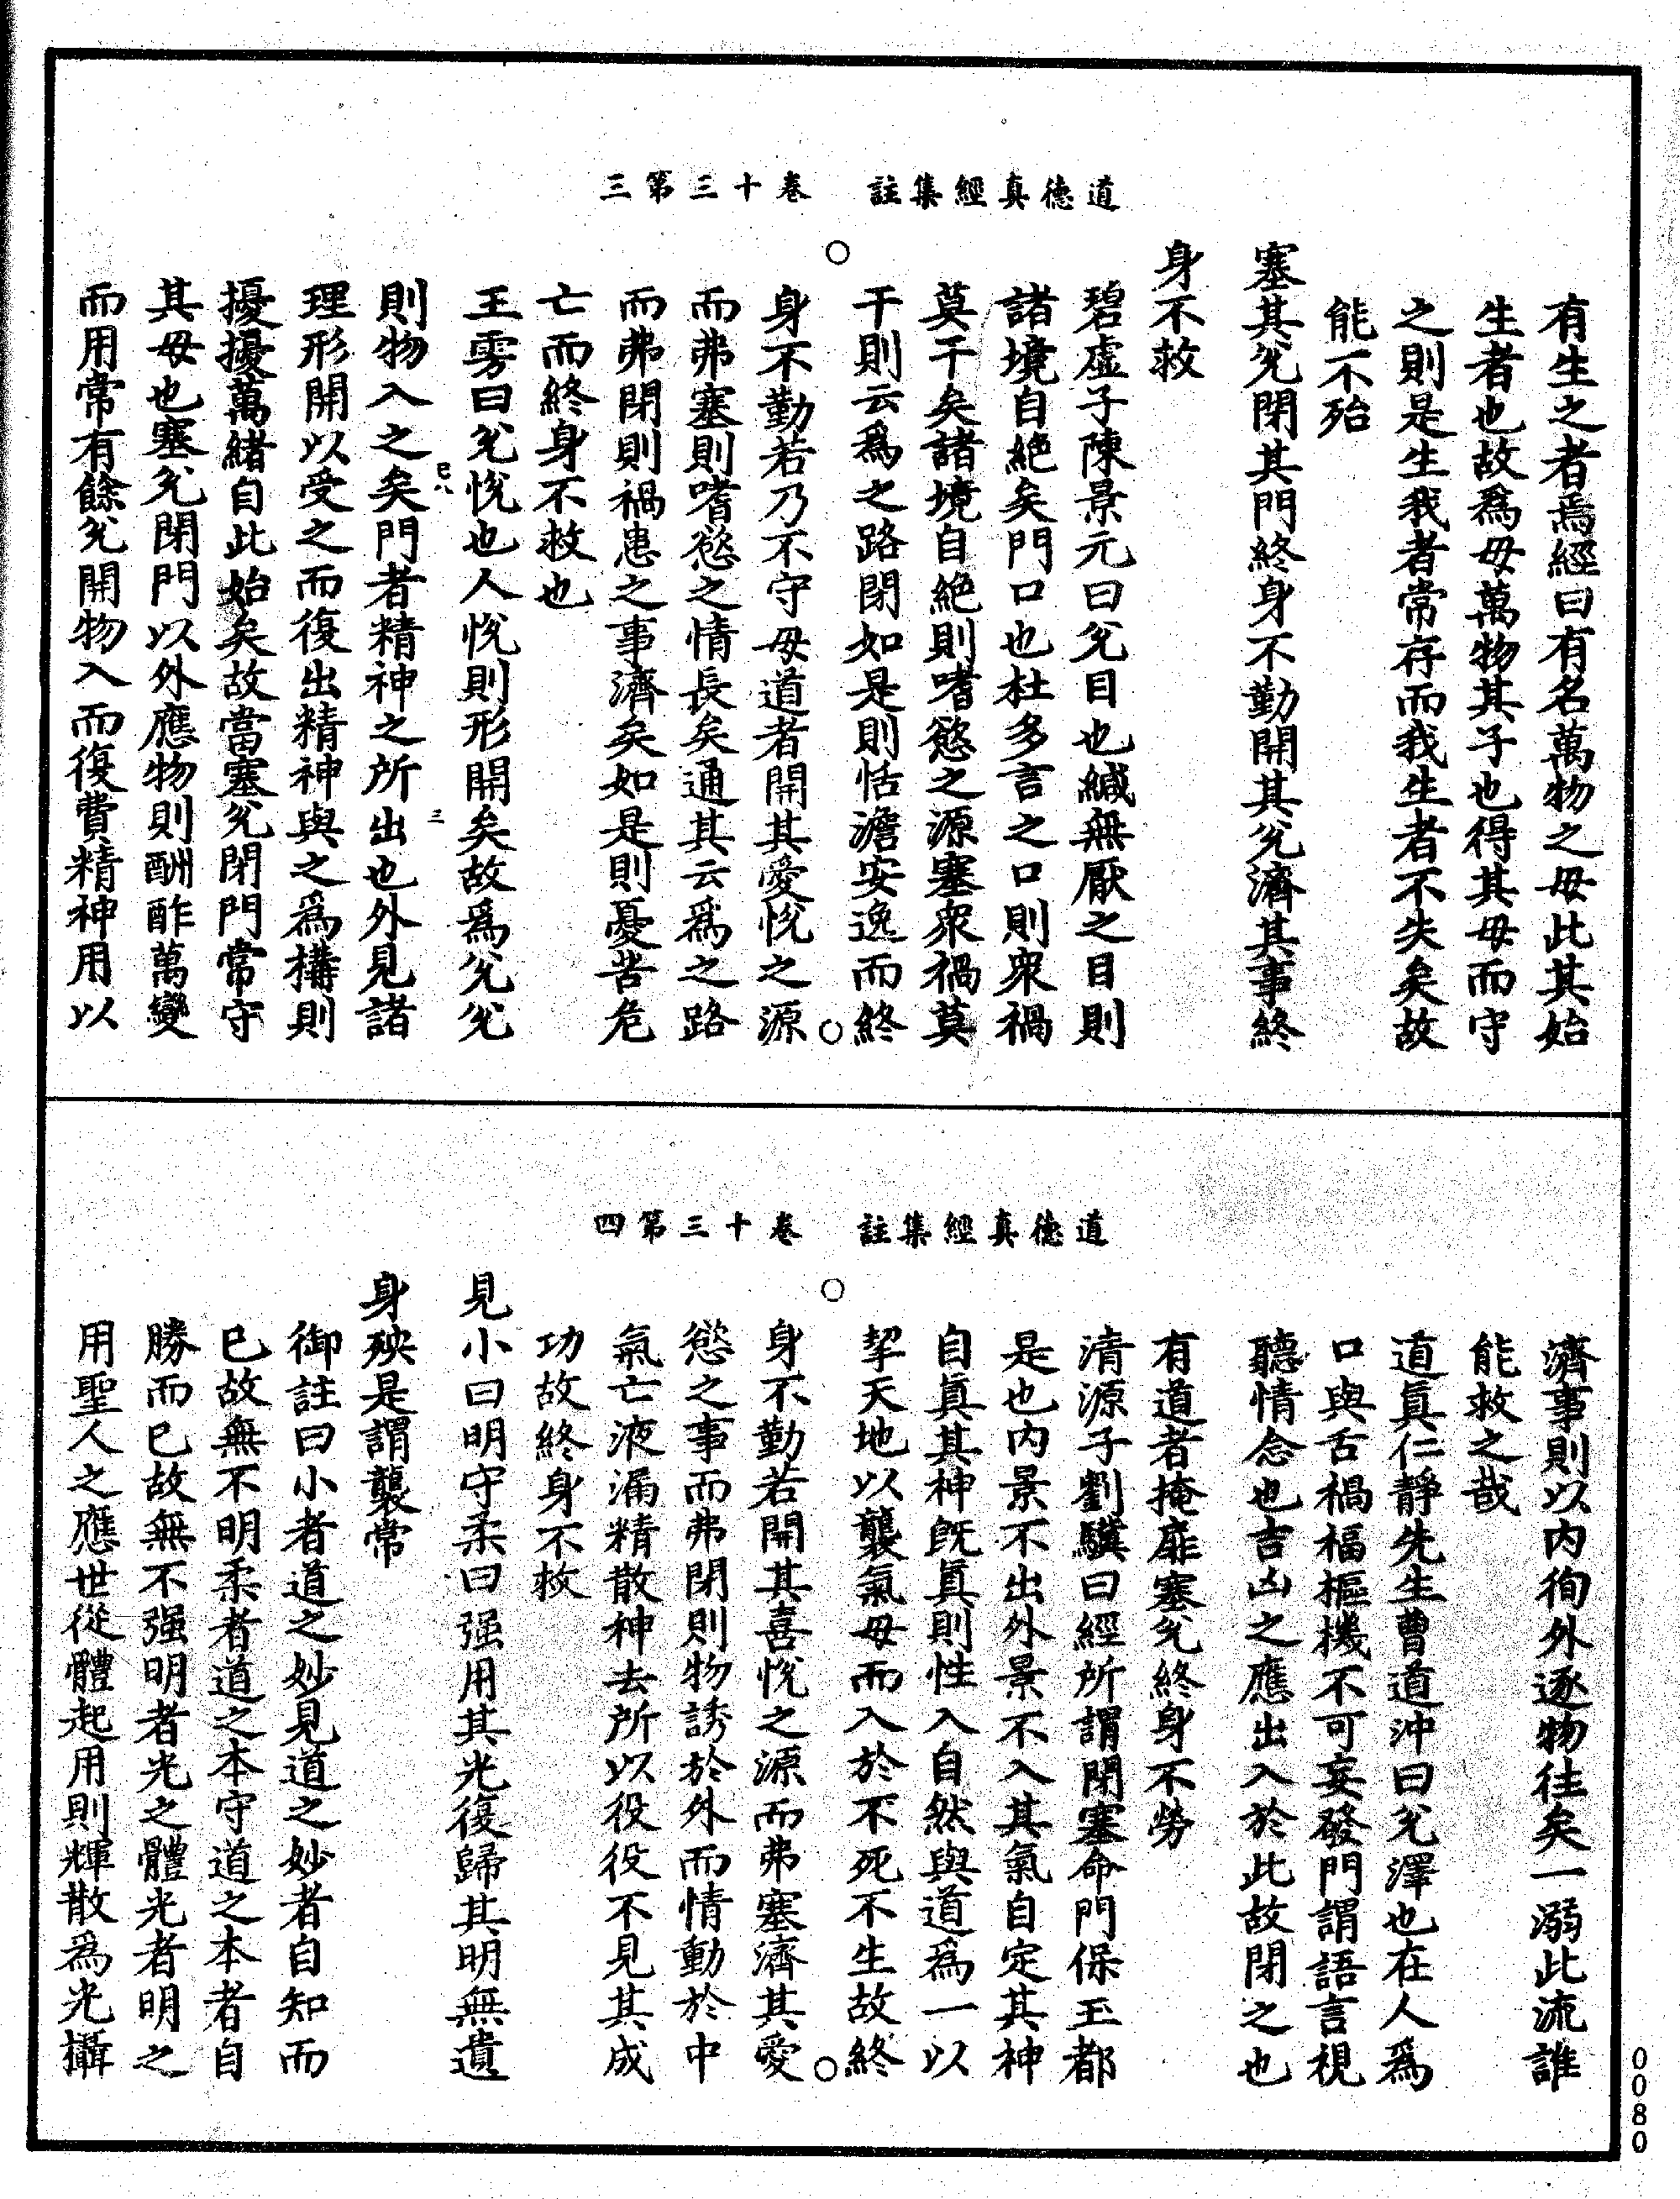 道德真經集註　卷十三第三
有生之者焉經曰有名萬物之母此其始
生者也故爲母萬物其子也得其母而守
之則是生我者常存而我生者不失矣故
能不殆
塞其兌閉其門終身不勤開其兌濟其事終
身不救
碧虛子陳景元曰兌目也緘無厭之目則
諸境自絕矣門口也杜多言之口則衆禍
莫干矣諸境自絕則嗜慾之源塞衆禍莫
干則云爲之路閉如是則恬澹安逸而終
身不勤若乃不守母道者開其愛悅之源
而弗塞則嗜慾之情長矣通其云爲之路
而弗閉則禍患之事濟矣如是則憂苦危
亡而終身不救也
王雱曰兌悅也人悅則形開矣故爲兌兌
則物入之矣門者精神之所出也外見諸
理形開以受之而復出精神與之爲構則
擾擾萬緒自此始矣故當塞兌閉門常守
其母也塞兌閉門以外應物則酬酢萬變
而用常有餘兌開物入而復費精神用以
已八
三
道德真經集註　卷十三第四
濟事則以內徇外逐物往矣一溺此流誰
能救之哉
道眞仁靜先生曹道沖曰兌澤也在人爲
口與舌禍福樞機不可妄發門謂語言視
聽情念也吉凶之應出入於此故閉之也
有道者掩扉塞兌終身不勞
清源子劉驥曰經所謂閉塞命門保玉都
是也內景不出外景不入其氣自定其神
自眞其神既眞則性入自然與道爲一以
挈天地以襲氣母而入於不死不生故終
身不勤若開其喜悅之源而弗塞濟其愛
慾之事而弗閉則物誘於外而情動於中
氣亡液漏精散神去所以役役不見其成
功故終身不救
見小曰明守柔曰强用其光復歸其明無遺
身殃是謂襲常
御註曰小者道之妙見道之妙者自知而
已故無不明柔者道之本守道之本者自
勝而已故無不强明者光之體光者明之
用聖人之應世從體起用則輝散爲光攝
0080